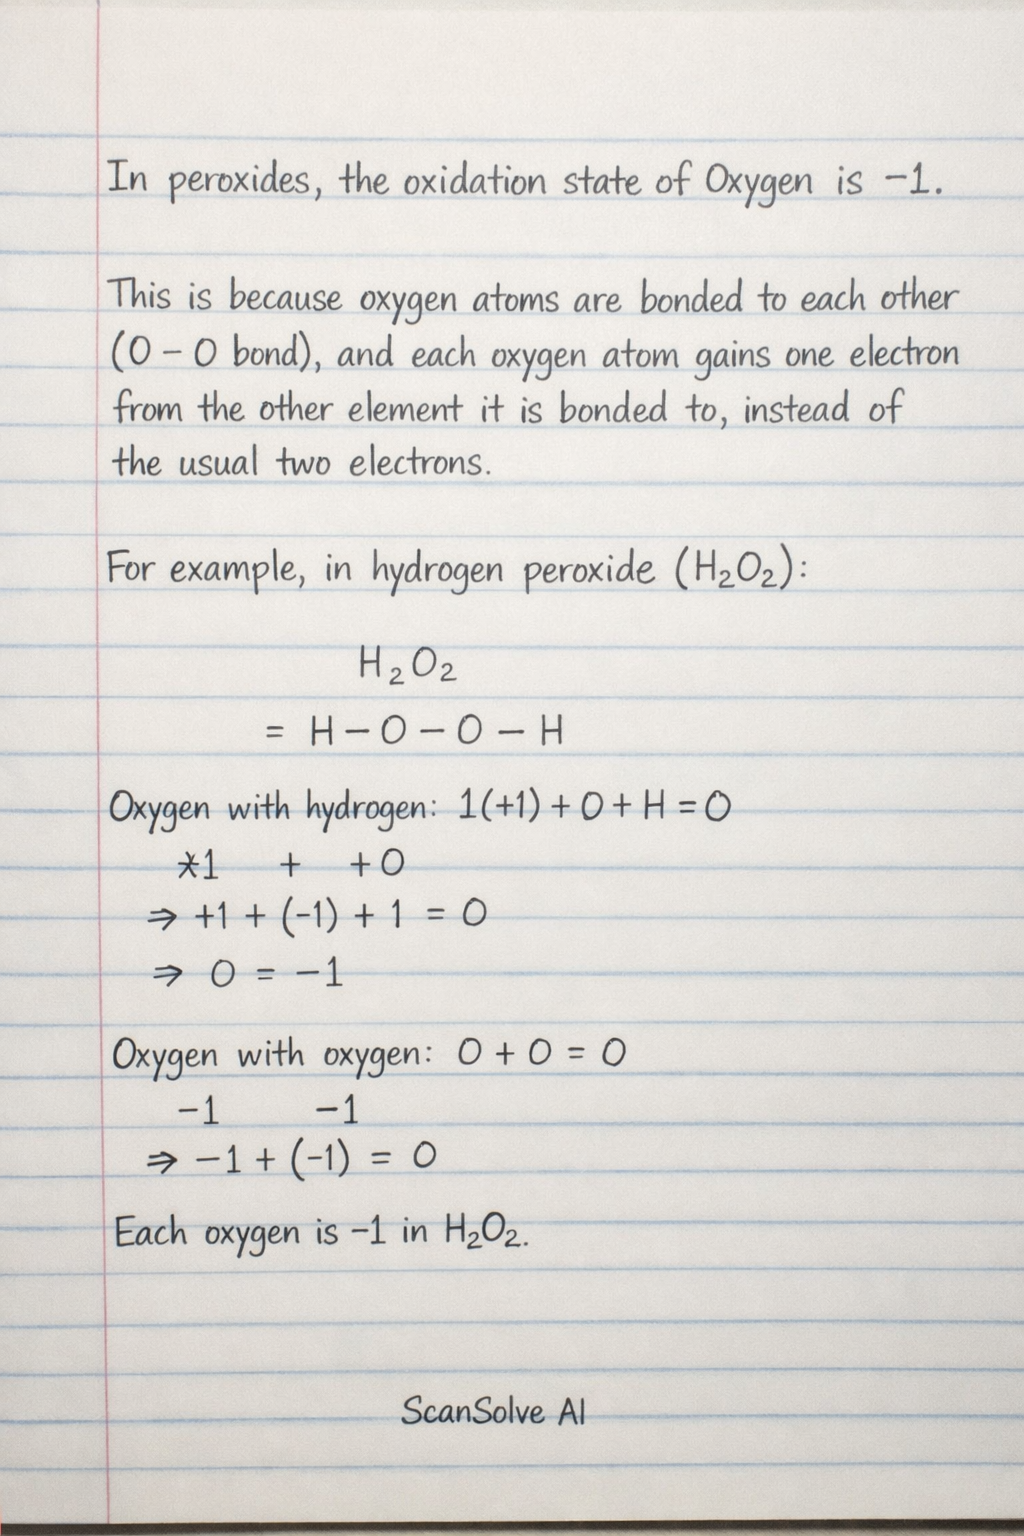 In peroxides, the oxidation state of Oxygen is −1.
This is because oxygen atoms are bonded to each other
(O − O bond), and each oxygen atom gains one electron
from the other element it is bonded to, instead of
the usual two electrons.
For example, in hydrogen peroxide (H₂O₂):
H₂O₂
= H − O − O − H
Oxygen with hydrogen: 1(+1) + O + H = O
*1 + +O
⇒ +1 + (−1) + 1 = O
⇒ O = −1
Oxygen with oxygen: O + O = O
−1 −1
⇒ −1 + (−1) = O
Each oxygen is −1 in H₂O₂.
ScanSolve AI